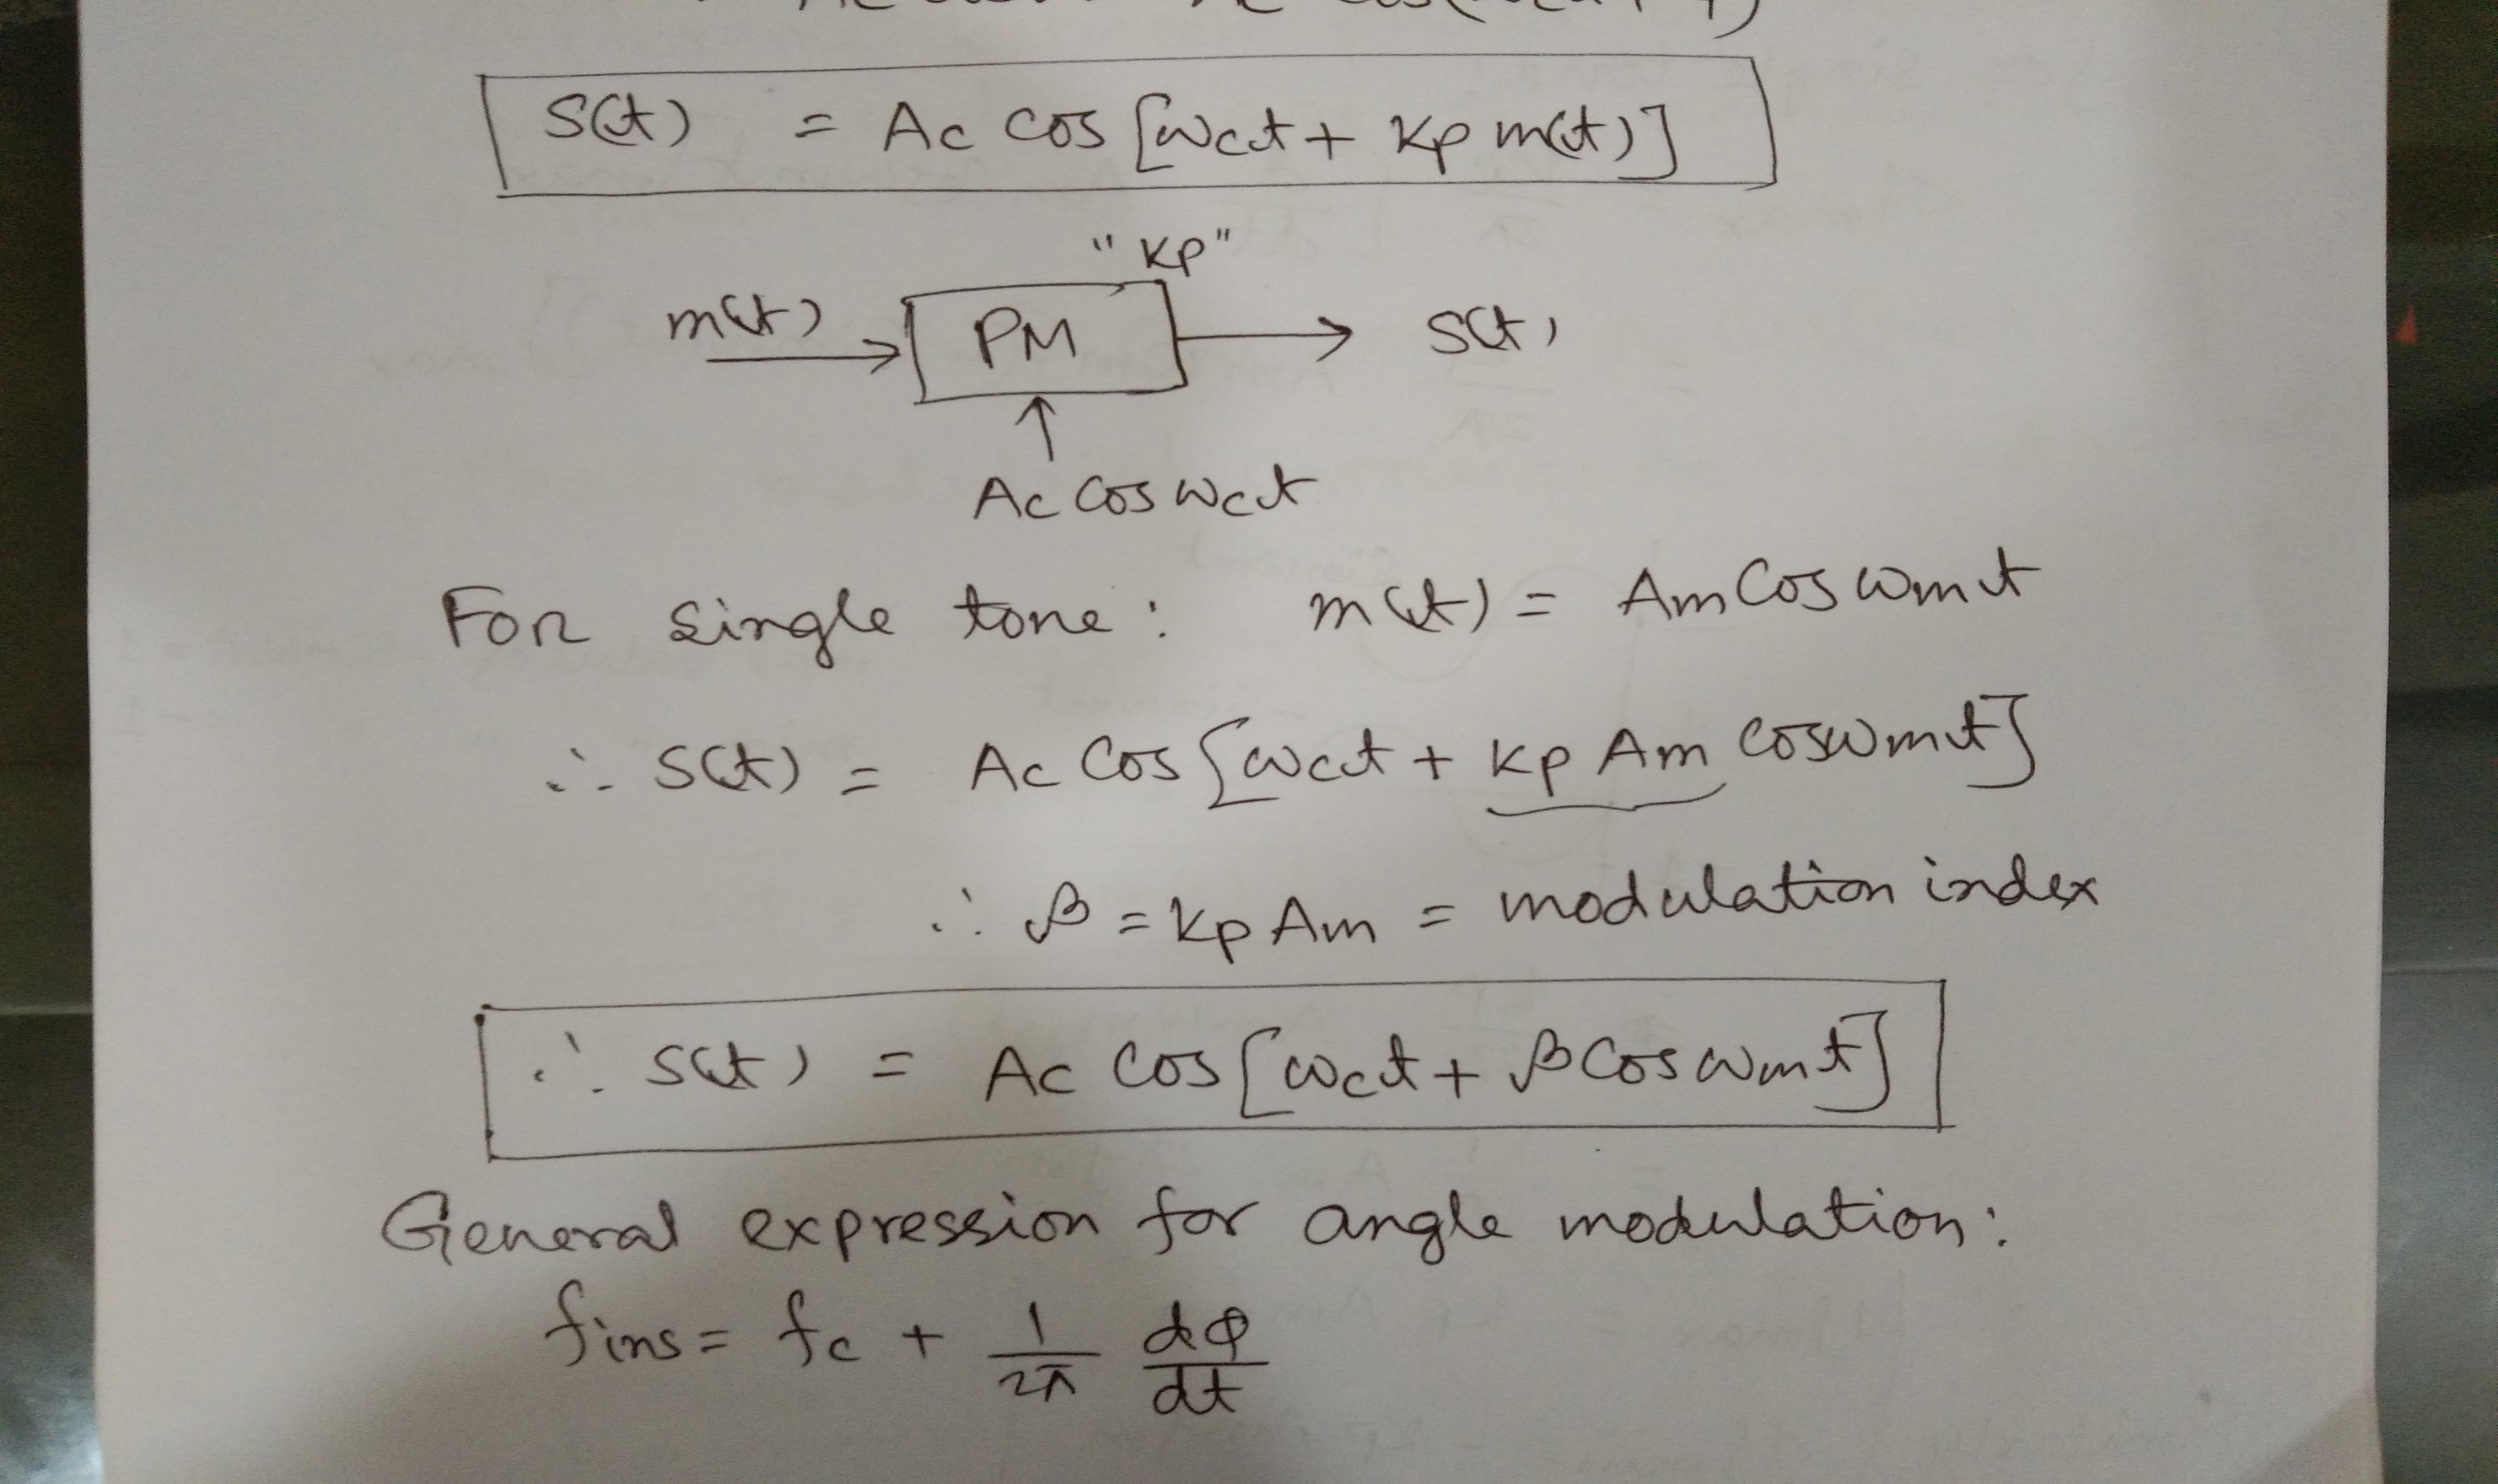 S(t) = Ac cos [ωct + Kp m(t)]
"Kp"
m(t) PM S(t)
Ac Cos ωct
For single tone: m(t) = Am Cos ωmt
∴ S(t) = Ac Cos [ωct + Kp Am cosωmt]
∴ β = Kp Am = modulation index
∴ S(t) = Ac Cos [ωct + β Cos ωmt]
General expression for angle modulation:
fins = fc + 1/2π dφ/dt